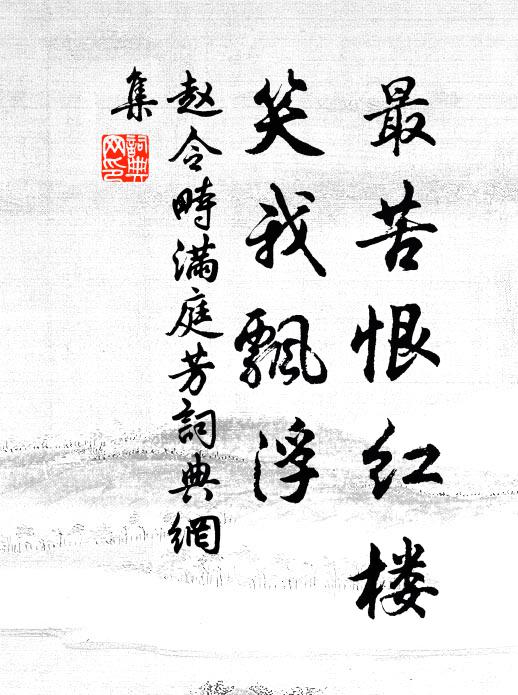 最苦恨红楼
笑我飘浮
赵令畤满庭芳詞典網
集
詞典
网印